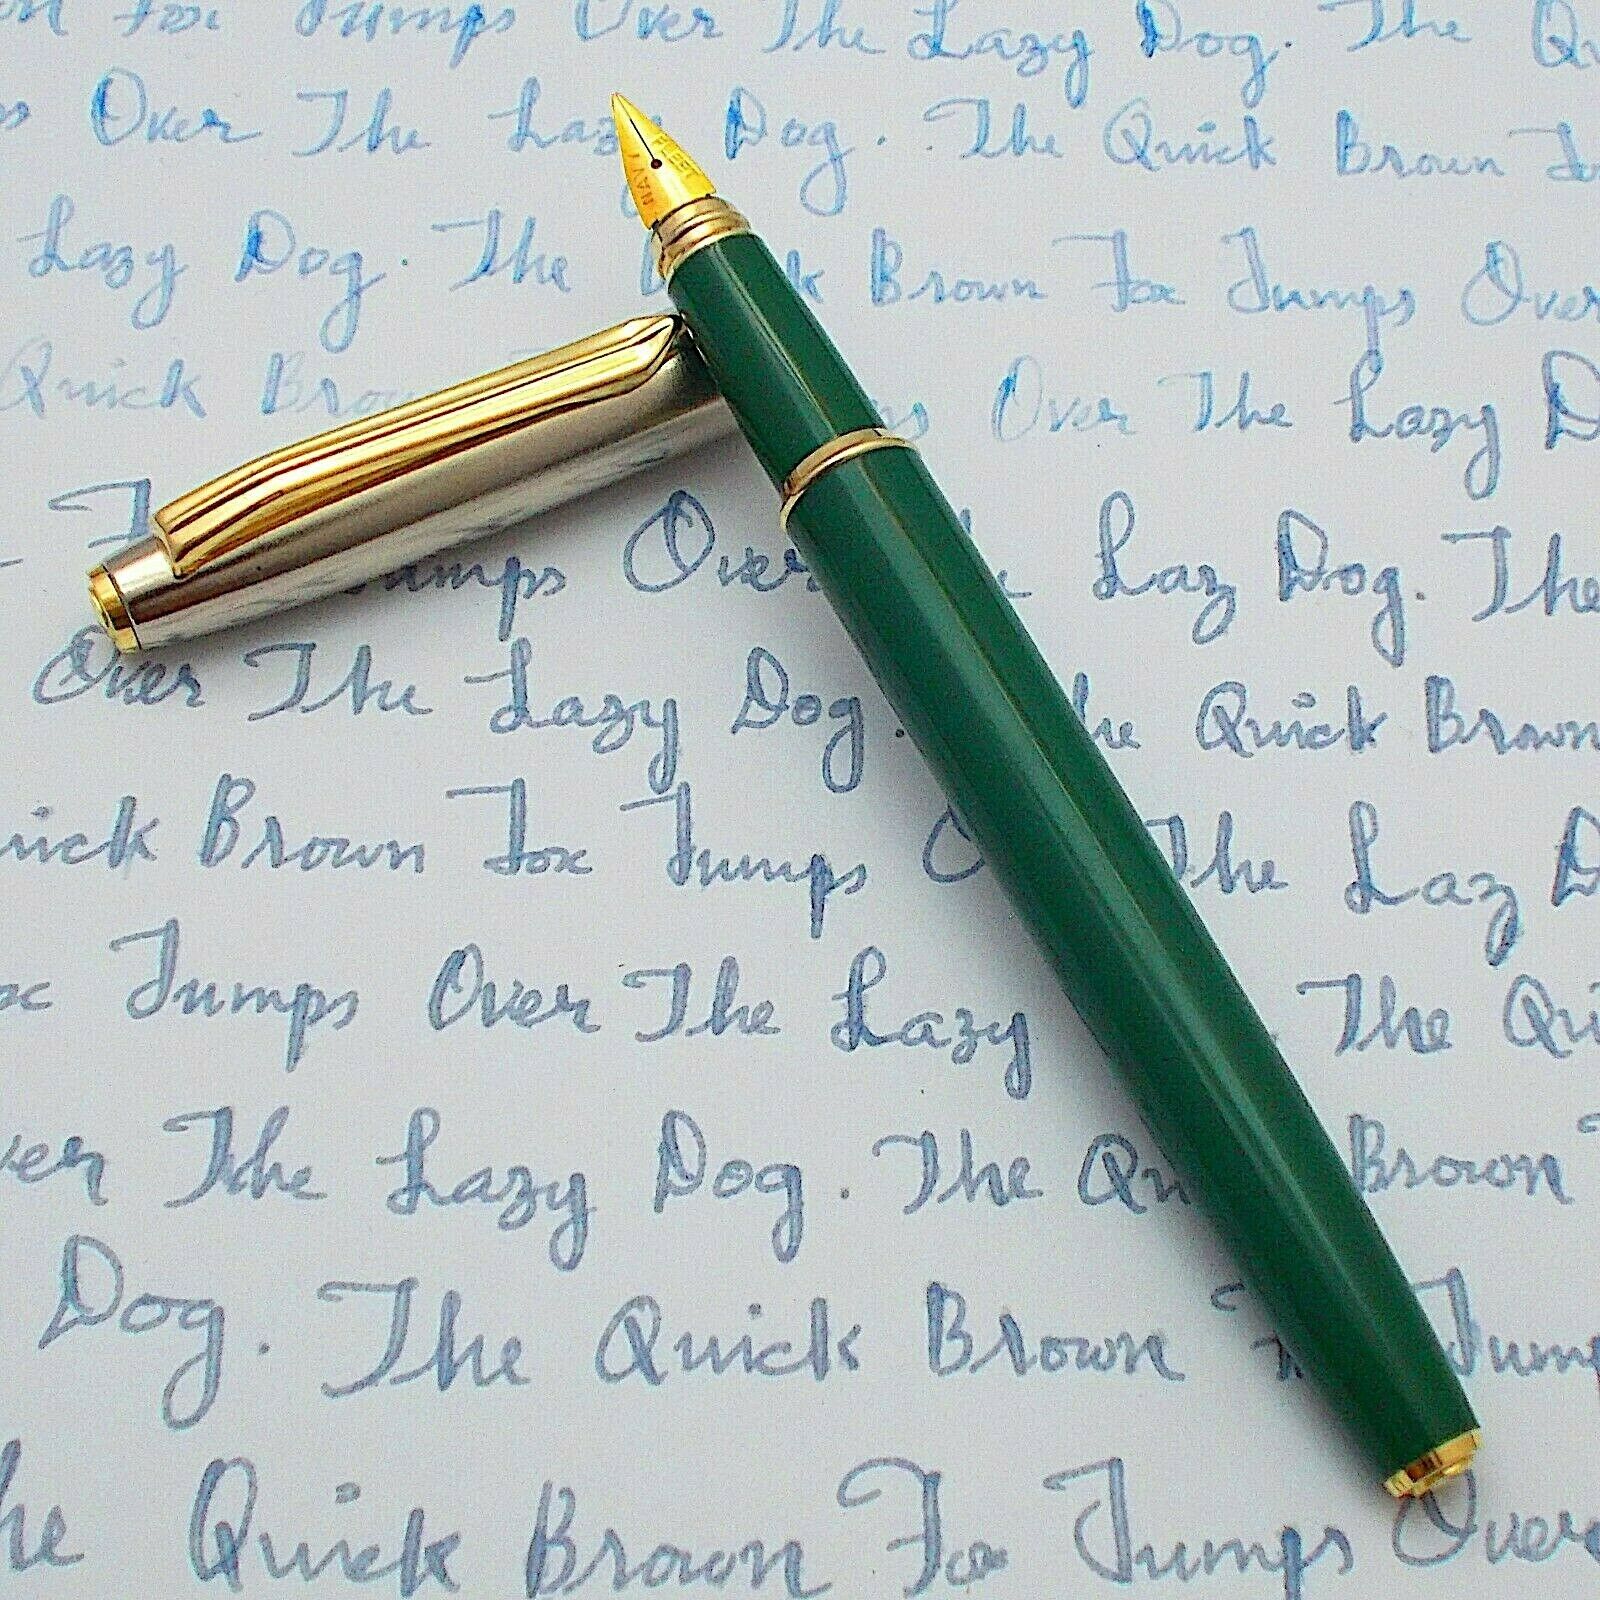 Fox Jumps Over The Lazy Dog. The
Over The Lazy Dog. The Quick Brown
FLEET
NAVY
Lazy Dog. The Brown Fox Jumps Over
Quick Over The Lazy
Jumps Over Laz Dog. The
Over The Lazy Dog. The Quick Brown
Quick Brown Fox Jumps The Laz
Fox Jumps Over The Lazy The
Over The Lazy Dog. The Brown
Dog. The Quick Brown Jumps
The Quick Brown Fox Jumps Over